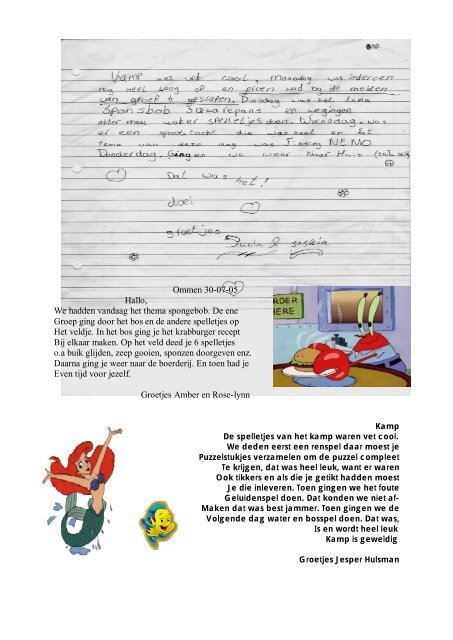 Kamp was vet cool, maandag was iedereen
nog heel lang op en groen had bij de meiden
van groep 6 geslapen. Dinsdag was het tema
Sponsbob Squarepans en we gingen
water spelletjes doen. Woensdag was
er een spooktocht die was heel en het
tema van deze dag was finding NEMO
Donderdag Gingen we weer Naar Huis
Dat was het!
doei
groetjes
Ommen 30-07-05
Hallo,
We hadden vandaag het thema spongebob. De ene
Groep ging door het bos en de andere spelletjes op
Het veldje. In het bos ging je het krabburger recept
Bij elkaar maken. Op het veld deed je 6 spelletjes
o.a buik glijden, zeep gooien, sponzen doorgeven enz.
Daarna ging je weer naar de boerderij. En toen had je
Even tijd voor jezelf.
Groetjes Amber en Rose-lynn
ORDER
HERE
Kamp
De spelletjes van het kamp waren vet cool.
We deden eerst een renspel daar moest je
Puzzelstukjes verzamelen om de puzzel compleet
Te krijgen, dat was heel leuk, want er waren
Ook tikkers en als die je getikt hadden moest
Je die inleveren. Toen gingen we het foute
Geluidenspel doen. Dat konden we niet af-
Maken dat was best jammer. Toen gingen we de
Volgende dag water en bosspel doen. Dat was,
Is en wordt heel leuk
Kamp is geweldig
Groetjes Jesper Hulsman